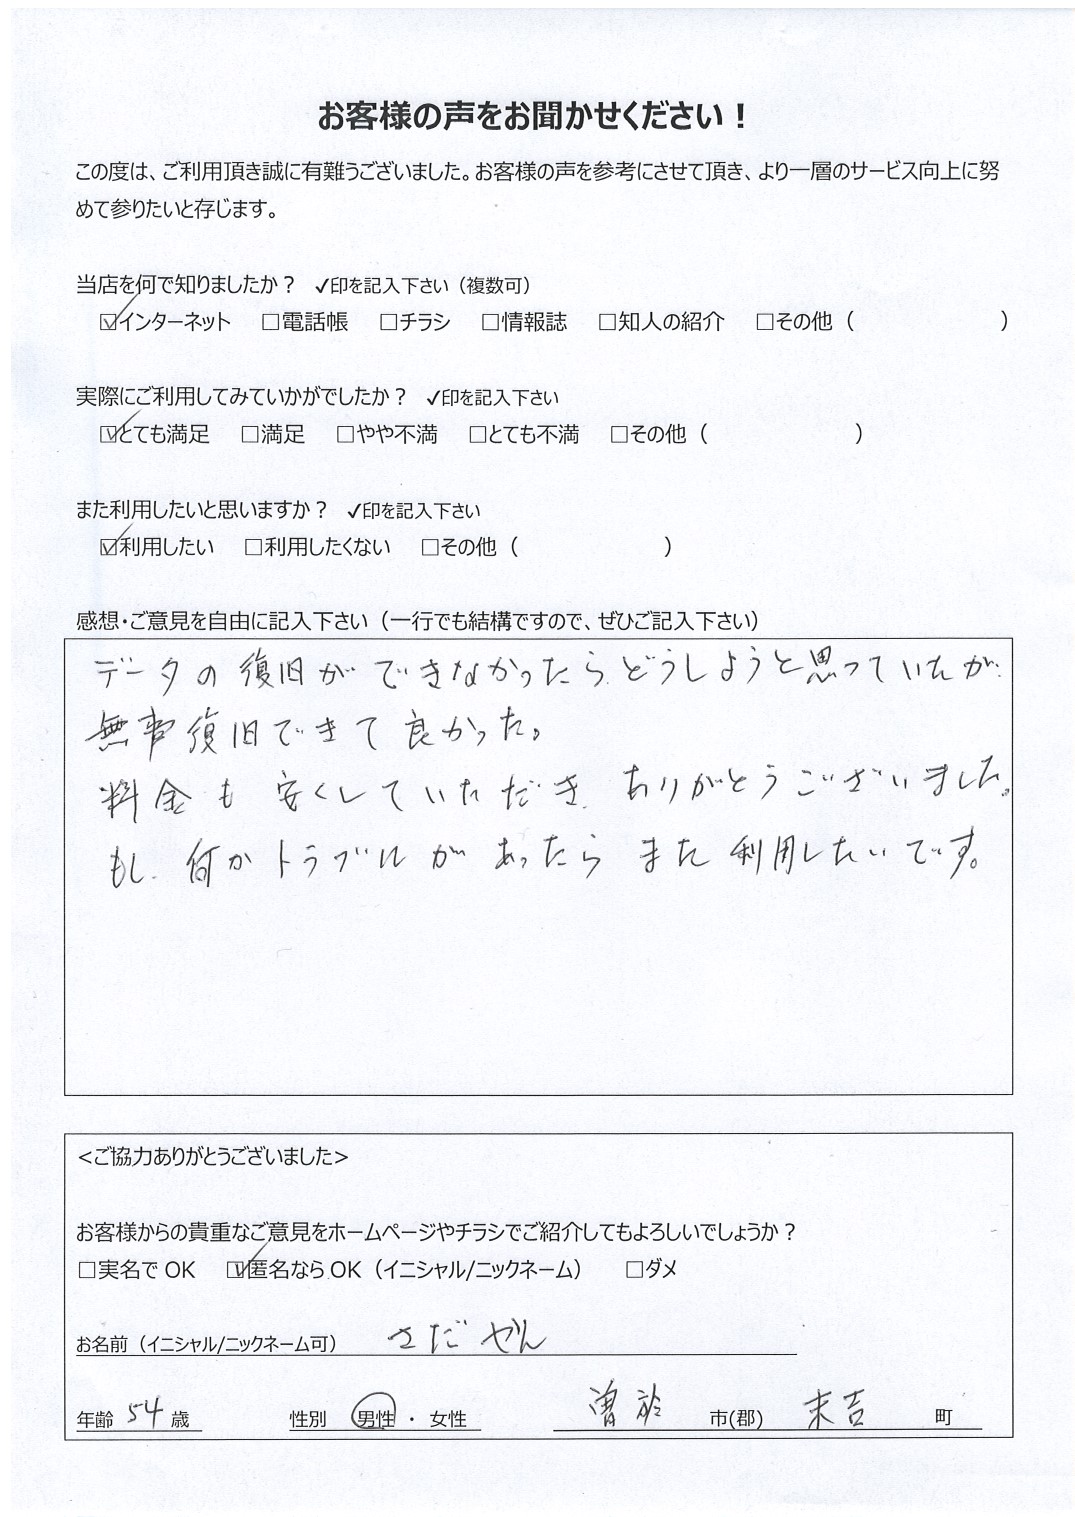 お客様の声をお聞かせください！
この度は、ご利用頂き誠に有難うございました。お客様の声を参考にさせて頂き、より一層のサービス向上に努
めて参りたいと存じます。
当店を何で知りましたか？ ✓印を記入下さい（複数可）
☑インターネット □電話帳 □チラシ □情報誌 □知人の紹介 □その他（ ）
実際にご利用してみていかがでしたか？ ✓印を記入下さい
☑とても満足 □満足 □やや不満 □とても不満 □その他（ ）
また利用したいと思いますか？ ✓印を記入下さい
☑利用したい □利用したくない □その他（ ）
感想・ご意見を自由に記入下さい（一行でも結構ですので、ぜひご記入下さい）
データの復旧ができなかったら、どうしようと思っていたが、
無事復旧できて良かった。
料金も安くしていただき、ありがとうございました。
もし、何かトラブルがあったらまた利用したいです。
<ご協力ありがとうございました>
お客様からの貴重なご意見をホームページやチラシでご紹介してもよろしいでしょうか？
□実名で OK ☑匿名なら OK（イニシャル/ニックネーム） □ダメ
お名前（イニシャル/ニックネーム可） さだやん
年齢 54 歳 性別 男性 ・ 女性 曽於 市(郡) 末吉 町